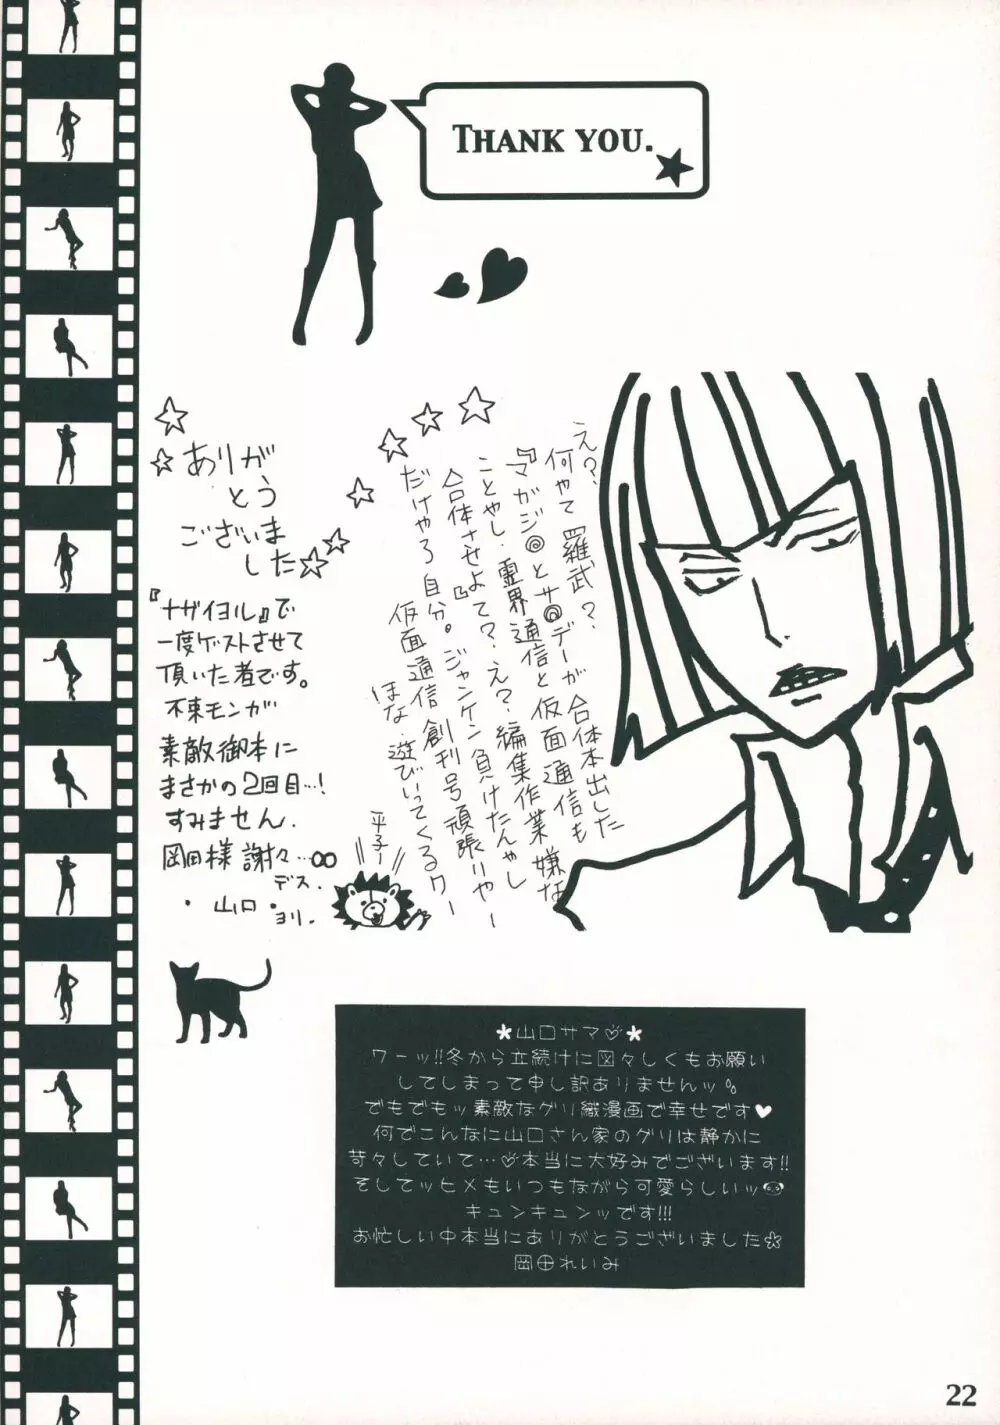 THANK YOU.
え？
何やて羅武？
『マガジ◎とサ◎デーが合体本出した
ことやし、霊界通信と仮面通信も
合体させよて？』え？編集作業嫌な
だけやろ自分。ジャンケン負けたんやし
仮面通信創刊号頑張りやー
ほな、遊びいってくるワー
平子ー
ありが
とう
ございま
した
『ナガイヨル』で
一度ゲストさせて
頂いた者です。
不束モンが
素敵御本に
まさかの2回目…!
すみません.
岡田様謝々…∞
デス.
・山口・
ヨリ.
*山口サマ*
ワーッ!!冬から立続けに図々しくもお願い
してしまって申し訳ありませんッ。
でもでもッ素敵なグリ織漫画で幸せです♥
何でこんなに山口さん家のグリは静かに
苛々していて…本当に大好みでございます!!
そしてッヒメもいつもながら可愛らしいッ
キュンキュンッです!!!
お忙しい中本当にありがとうございました
岡田れいみ
22